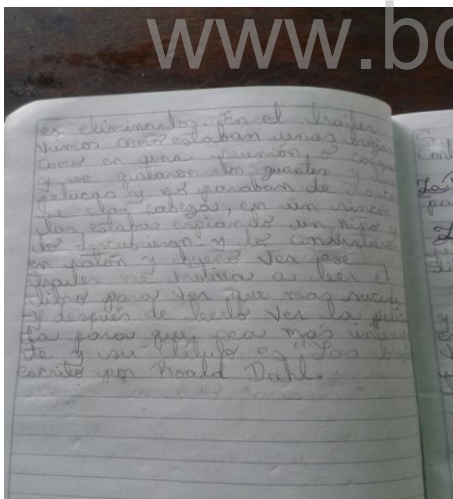 www.bo
es eliminarlos. En el trailer
vimos como estaban unas brujas
como en una reunión o
y se quitaron los guantes
pelucas y no paraban de
se la cabeza, en un rincón
las estaba espiando un niño y
lo descubrieron y lo convirtieron
en ratón y bueno ver ese
trailer me motiva a leer el
libro para ver que mas sucede
y después de leerlo ver la pelicu
la para que sea mas intere
te y su titulo es "Las bru
escrito por Roald Dahl.